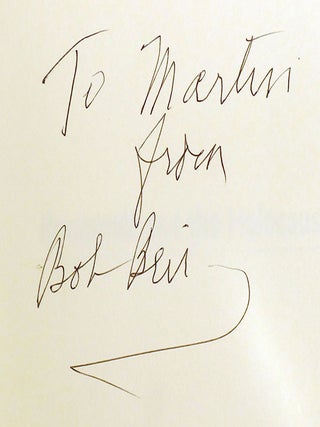 To Martin
from
Bob